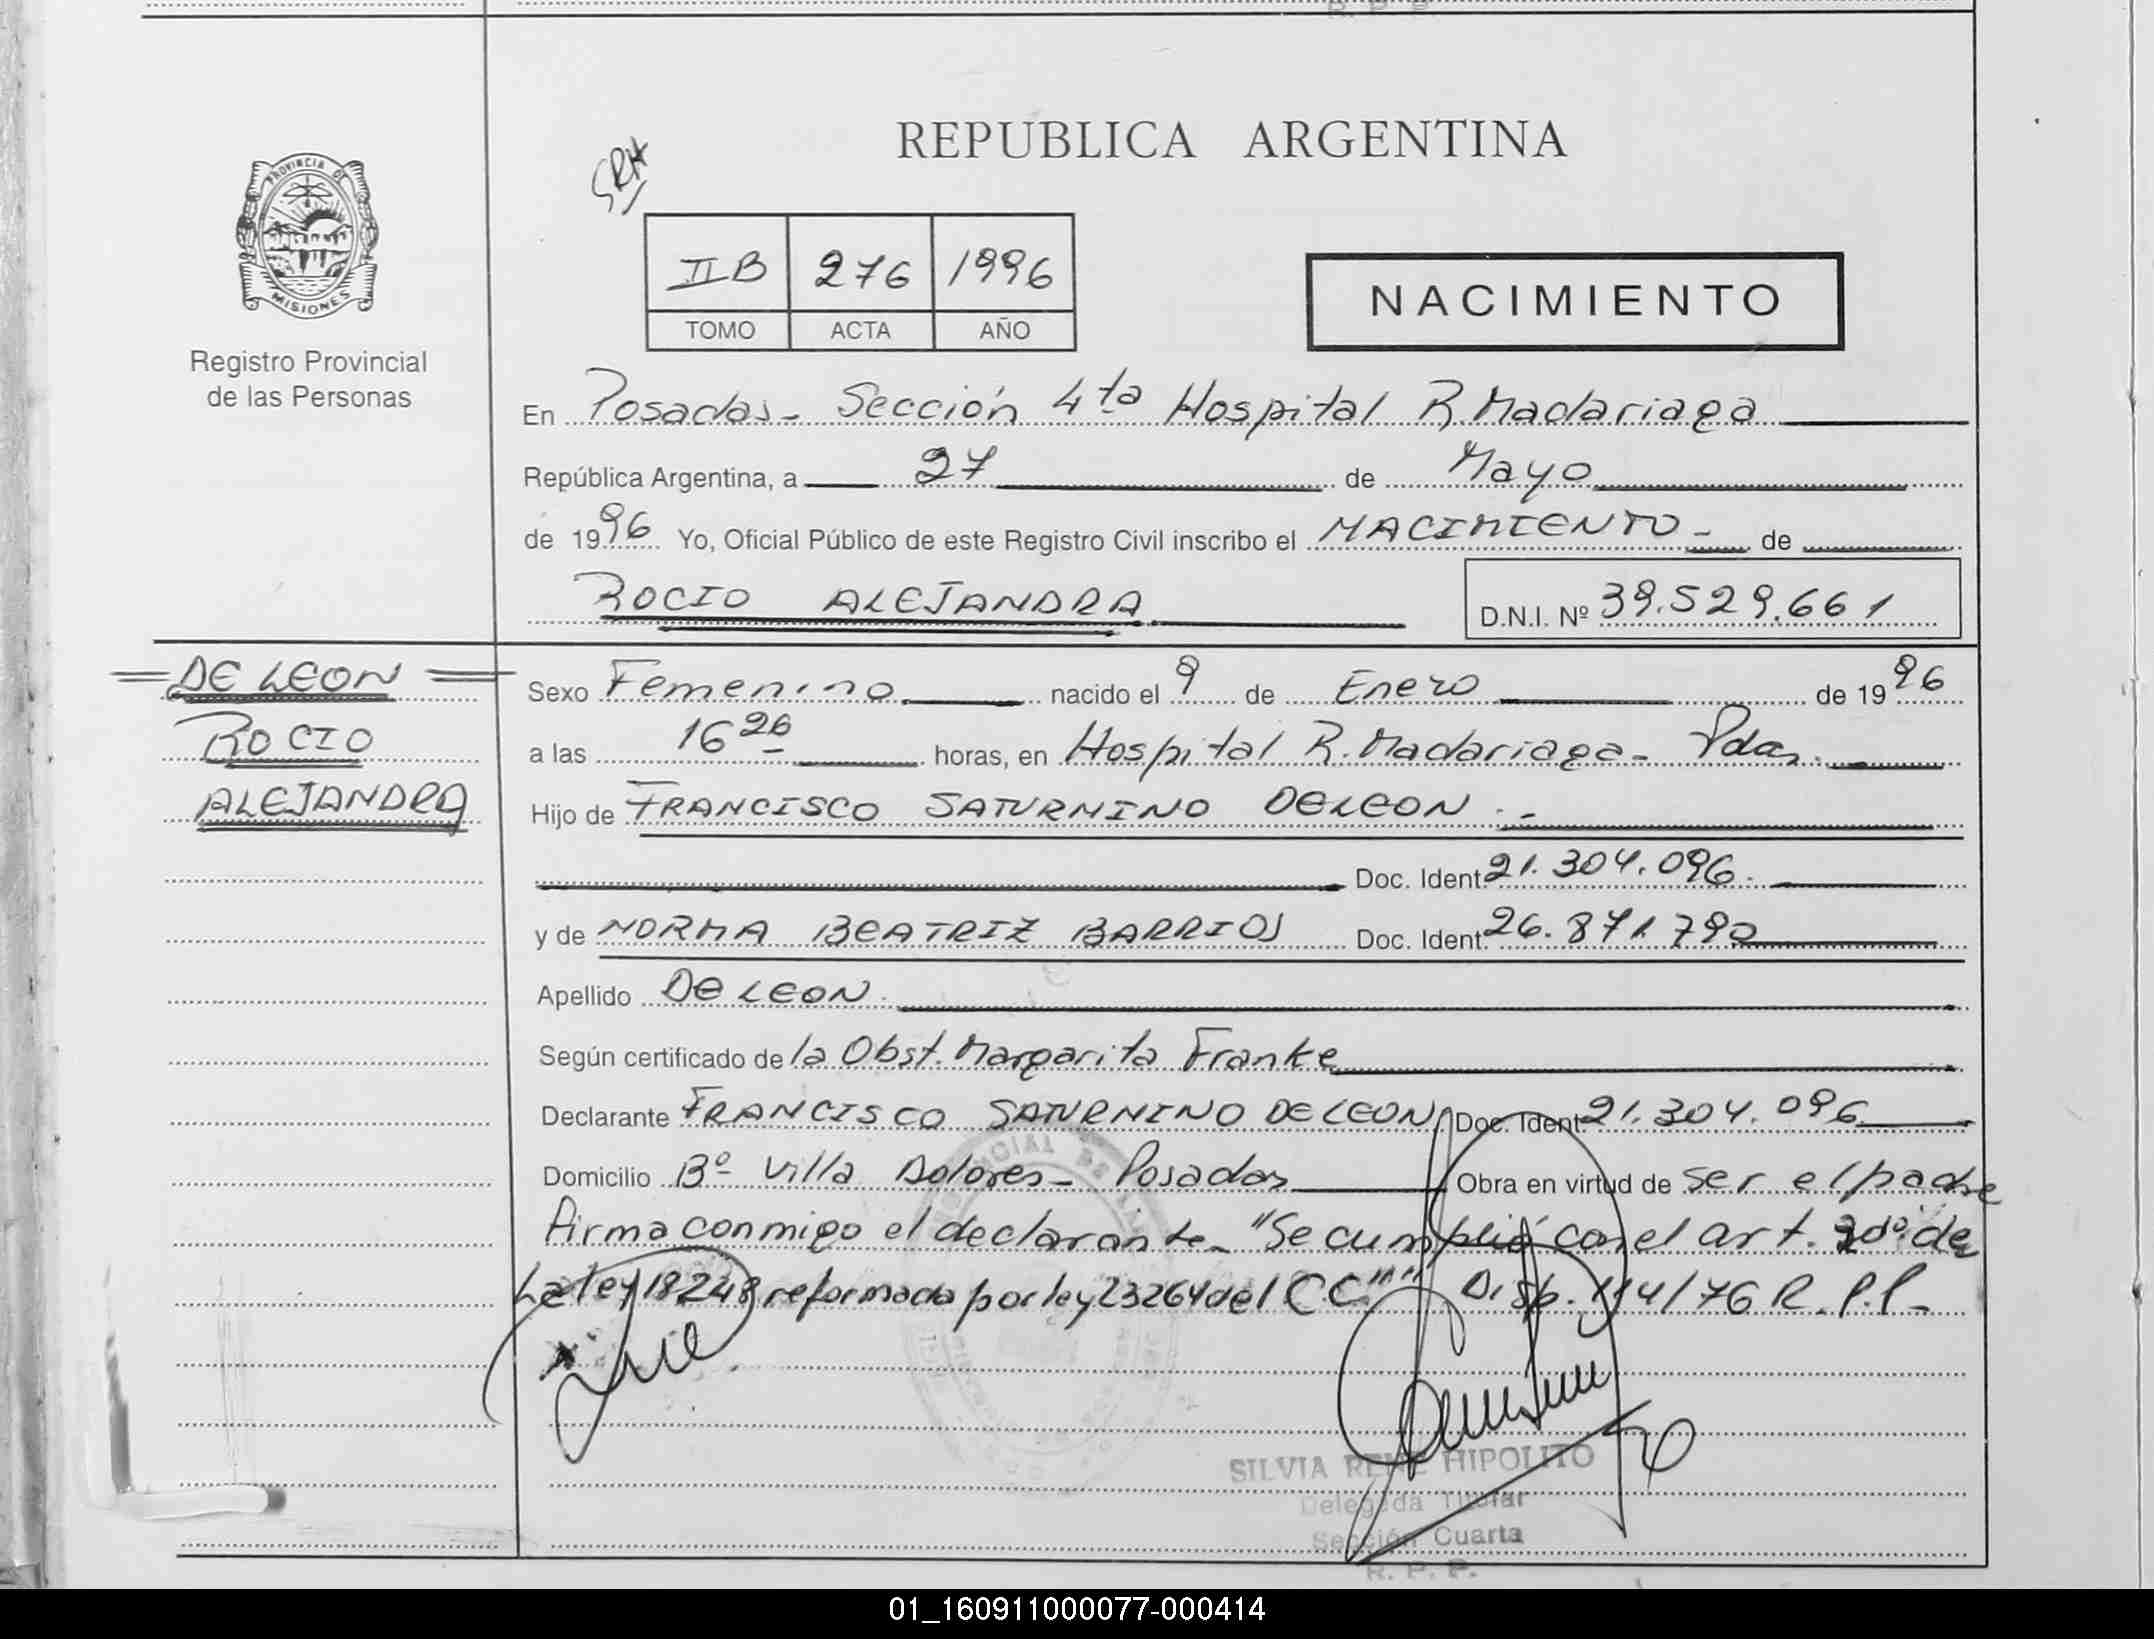 REPUBLICA ARGENTINA
SRH
PROVINCIA DE
MISIONES
Registro Provincial
de las Personas
II B 276 1996
TOMO ACTA AÑO
NACIMIENTO
En Posadas - Sección 4ta Hospital R. Madariaga
República Argentina, a 27 de Mayo
de 1996 Yo, Oficial Público de este Registro Civil inscribo el NACIMIENTO - de
ROCIO ALEJANDRA D.N.I. Nº 39.529.661
DE LEON
ROCIO
ALEJANDRA
Sexo Femenino nacido el 9 de Enero de 1996
a las 16 26 horas, en Hospital R. Madariaga - Pdas.
Hijo de FRANCISCO SATURNINO DE LEON . -
Doc. Ident. 21.304.096.
y de NORMA BEATRIZ BARRIOS Doc. Ident. 26.871.790
Apellido DE LEON.
Según certificado de la Obst. Margarita Franke
Declarante FRANCISCO SATURNINO DE LEON Doc. Ident. 21.304.096
Domicilio Bº Villa Dolores - Posadas Obra en virtud de ser el padre
Firma conmigo el declarante - "Se cumplió con el art. de
La ley 18248 reformada por ley 23264 del CC"" Disp. 114/76 R.P.P. -
SILVIA RENE HIPOLITO
Delegada Titular
Sección Cuarta
R. P. P.
01_160911000077-000414